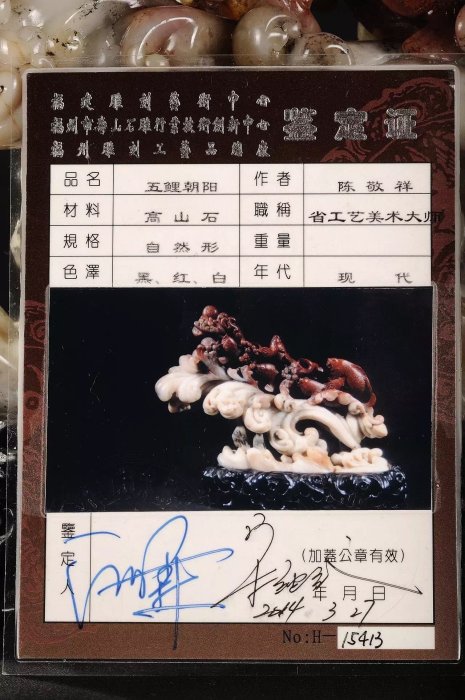 福建雕刻藝術中心
福州市壽山石雕行業技術創新中心
福州雕刻工藝品總廠
鉴定证
品名 五鲤朝阳 作者 陈敬祥
材料 高山石 職稱 省工艺美术大师
規格 自然形 重量
色澤 黑、红、白 年代 现代
鑒定人
(加蓋公章有效)
年 月 日
2014 3 27
No:H— 15413